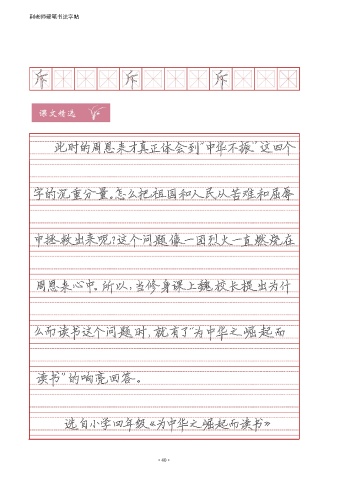 斥 斥 斥
课文精选
此时的周恩来才真正体会到“中华不振”这四个
字的沉重分量。怎么把祖国和人民从苦难和屈辱
中拯救出来呢?这个问题像一团烈火一直燃烧在
周恩来心中。所以,当修身课上魏校长提出为什
么而读书这个问题时,就有了“为中华之崛起而
读书”的响亮回答。
选自小学四年级《为中华之崛起而读书》
· 40 ·